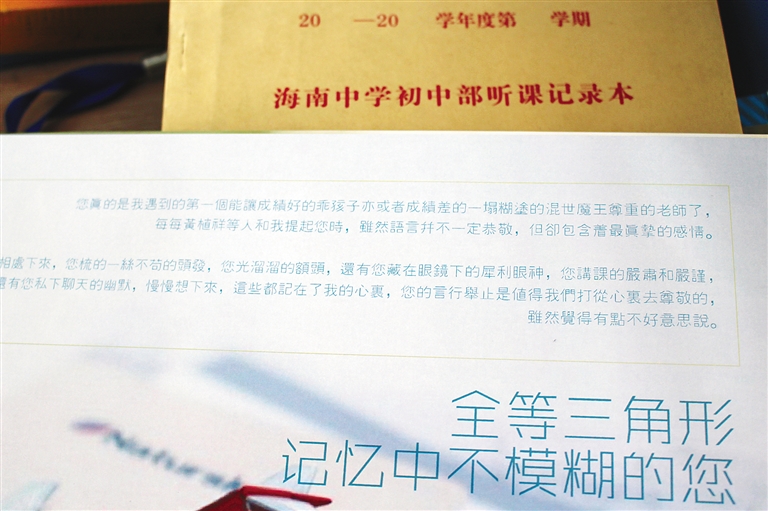 20 —20 学年度第 学期
海南中学初中部听课记录本
您真的是我遇到的第一個能讓成績好的乖孩子亦或者成績差的一塌糊塗的混世魔王尊重的老師了，
每每黃植祥等人和我提起您時，雖然語言并不一定恭敬，但卻包含着最真摯的感情。
相處下來，您梳的一絲不苟的頭發，您光溜溜的額頭，還有您藏在眼鏡下的犀利眼神，您講課的嚴肅和嚴謹，
還有您私下聊天的幽默，慢慢想下來，這些都記在了我的心裏，您的言行舉止是值得我們打從心裏去尊敬的，
雖然覺得有點不好意思說。
全等三角形
记忆中不模糊的您
Natural